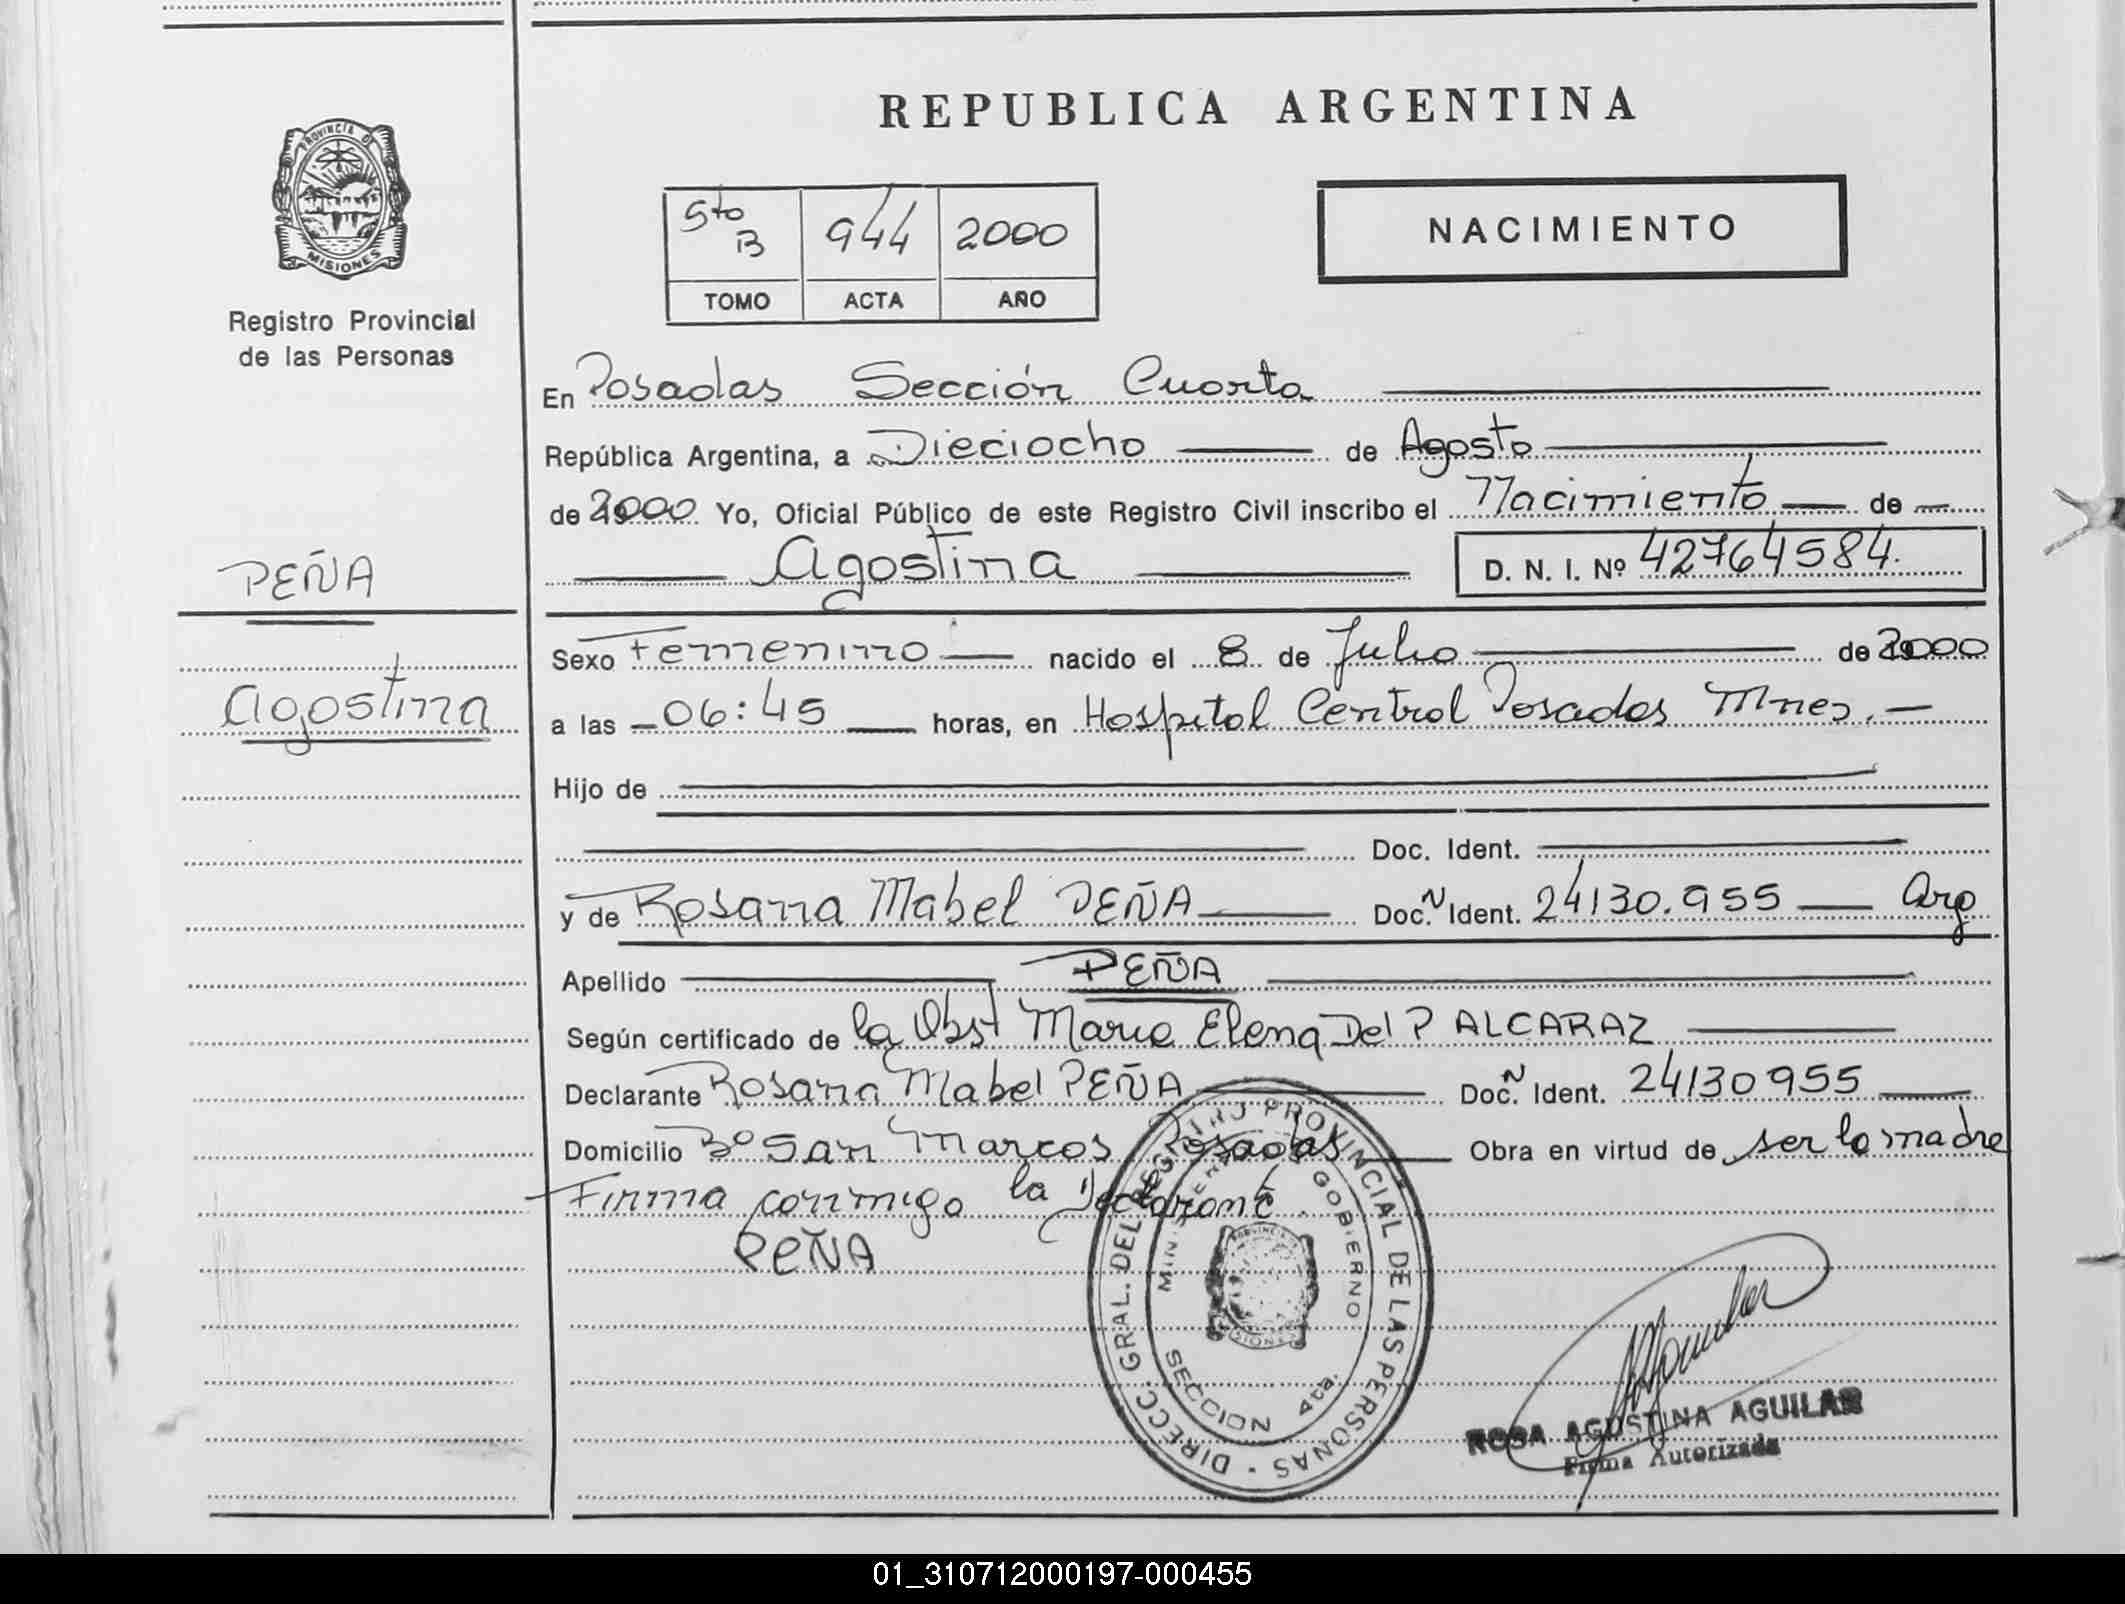 REPUBLICA ARGENTINA
PROVINCIA DE
MISIONES
Registro Provincial
de las Personas
5to B 944 2000
TOMO ACTA AÑO
NACIMIENTO
En Posadas Sección Cuarta
República Argentina, a Dieciocho de Agosto
de 2000 Yo, Oficial Público de este Registro Civil inscribo el Nacimiento de
Agostina D. N. I. Nº 42764584.
PEÑA
Agostina
Sexo Femenino nacido el 8 de Julio de 2000
a las 06:45 horas, en Hospital Central Posadas Mnes.
Hijo de
Doc. Ident.
y de Rosana Mabel PEÑA Doc. N Ident. 24130.955 Arg
Apellido PEÑA
Según certificado de la Obst Maria Elena Del P ALCARAZ
Declarante Rosana Mabel PEÑA Doc. N Ident. 24130955
Domicilio Bº San Marcos Posadas Obra en virtud de ser la madre
Firma conmigo la Declarante
PEÑA
DIRECC. GRAL. DEL REGISTRO PROVINCIAL DE LAS PERSONAS
GOBIERNO
SECCION 4ta.
ROSA AGUSTINA AGUILAR
Firma Autorizada
01_310712000197-000455